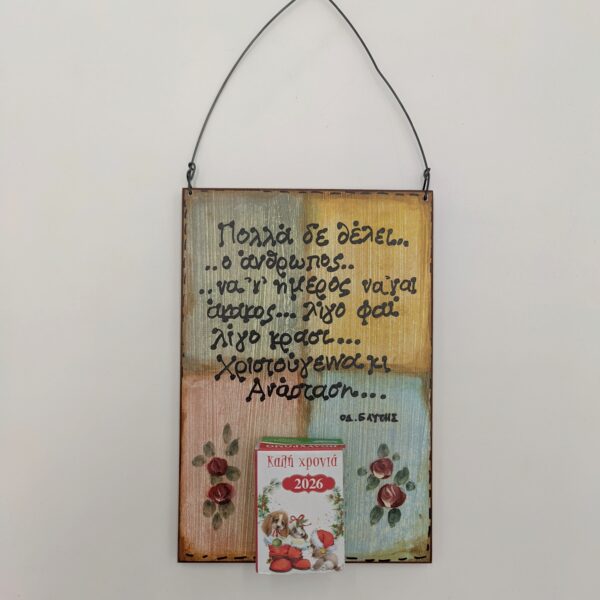 Πολλά δε θέλει..
..ο άνθρωπος..
..να 'ν' ήμερος να 'ναι
άκακος... λίγο φαΐ
λίγο κρασί...
Χριστούγεννα κι
Ανάσταση...
ΟΔ. ΕΛΥΤΗΣ
Καλή χρονιά
2026